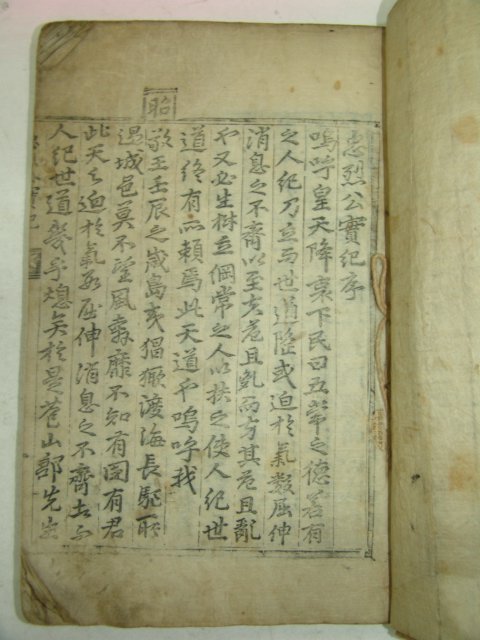 忠烈公實紀序
嗚呼皇天降衷下民曰五常之德若有
之人紀乃立而世道隆或迫於氣數屈伸
消息之不齊以至大危且亂而方其危且亂
也又必生樹立綱常之人以扶之使人紀世
道終有所賴焉此天道也嗚呼我
昭敬王壬辰之歲島夷猖獗渡海長駈所
過城邑莫不望風奔靡不知有國有君
此天之迫於氣數屈伸消息之不齊
人紀世道幾乎熄矣於是蒼山部先生
公實紀